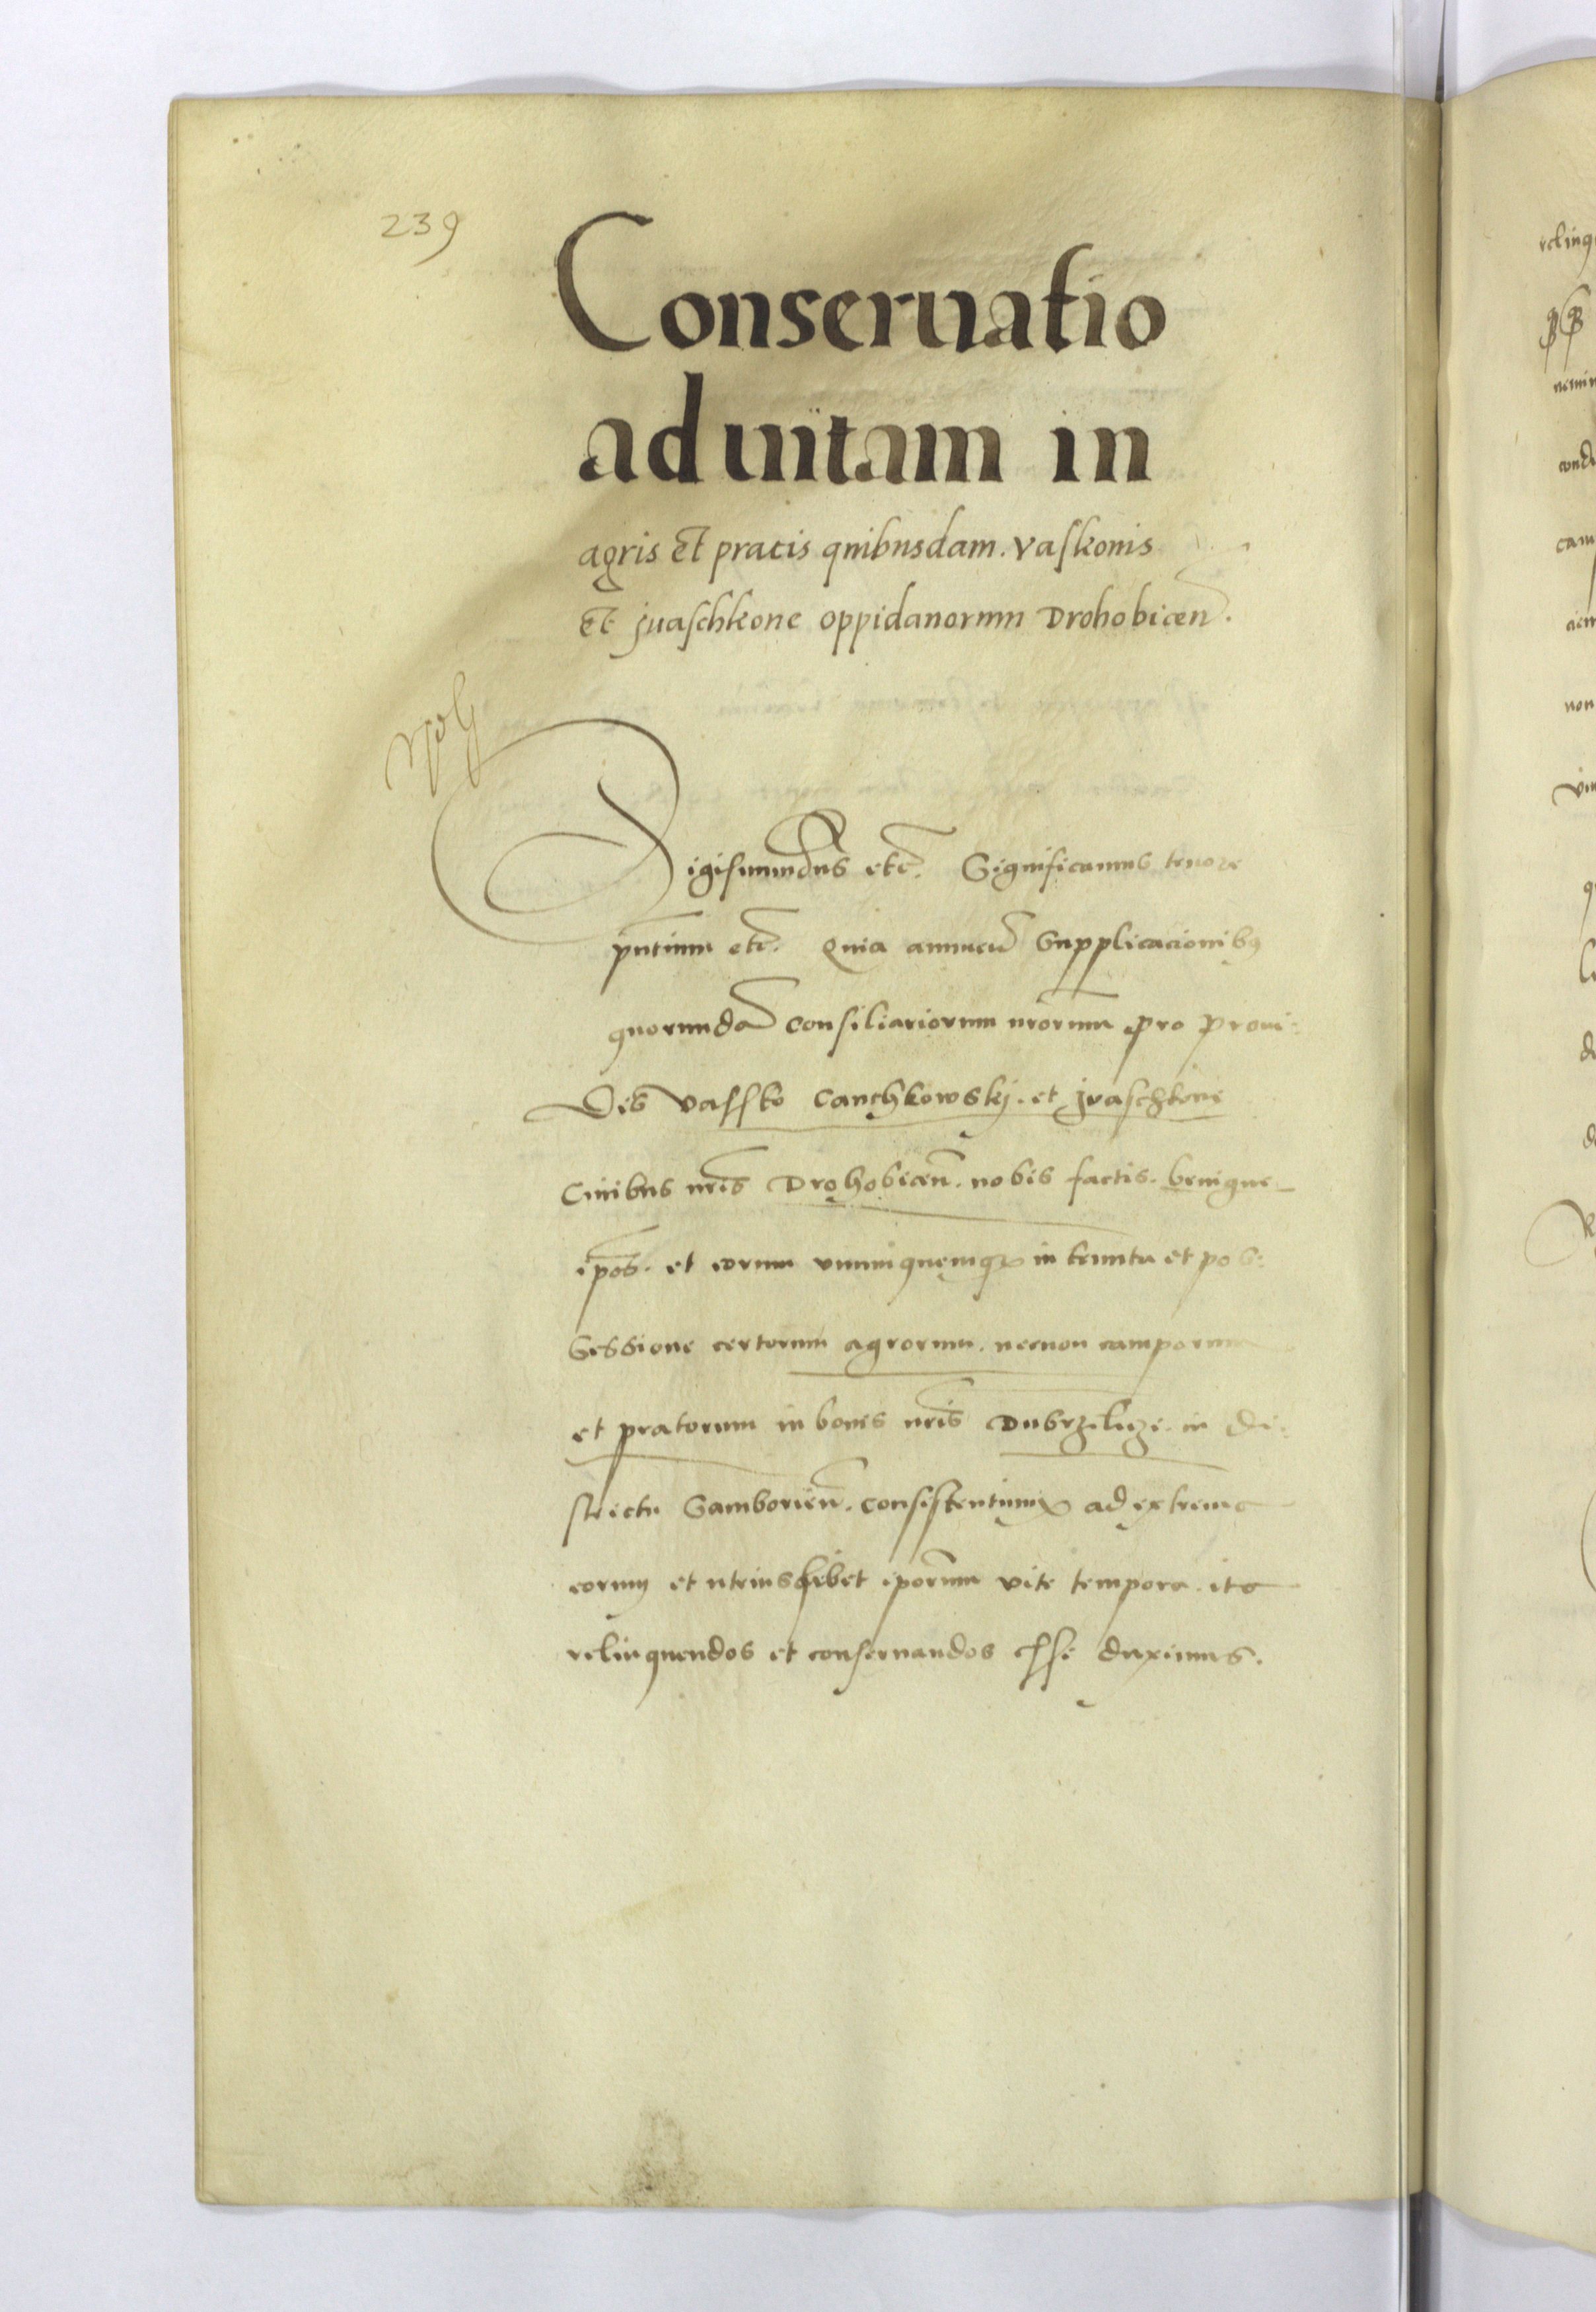 239
Conseruatio
ad uitam in
agris et pratis quibusdam. Vaskonis
et jvaschkone oppidanorum Drohobicen̄.
Sigismundus etc̄. Significamus tenore
pn̄tium etc̄. Quia annuen̄ Supplicacionibꝰ
quorundā consiliariorum nr̄orum pro proui:
dis Vassko Canchkowskj. et jvaschkone
Ciuibus nr̄is Drohobicen̄. nobis factis. benigne
ip̄os. et eorum vnumquemqꝫ in tenuta et pos:
sessione certorum agrorum. necnon camporum
et pratorum in bonis nr̄is Dubrzeliczi. in di:
strictu Samborien̄. consistentium ad extrema
eorum et utriuslibet ip̄orum vite tempora. ita
relinquendos et conseruandos esse duximus.